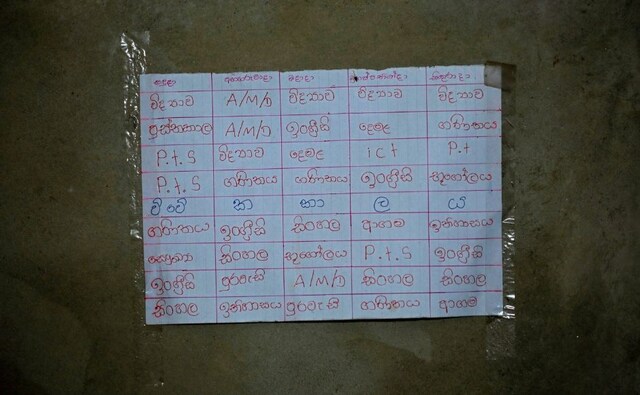 සඳුදා අඟහරුවාදා බදාදා බ්‍රහස්පතින්දා සිකුරාදා
විද්‍යාව A/M/D විද්‍යාව විද්‍යාව විද්‍යාව
පුස්තකාල A/M/D ඉංග්‍රීසි දෙමළ ගණිතය
P.t.S විද්‍යාව දෙමළ ict P.t
P.t.S ගණිතය ගණිතය ඉංග්‍රීසි භූගෝලය
වි වේ ක කා ල ය
ගණිතය ඉංග්‍රීසි සිංහල ආගම ඉතිහාසය
සෞඛ්‍ය සිංහල භූගෝලය P.t.S ඉංග්‍රීසි
ඉංග්‍රීසි පුරවැසි A/M/D සිංහල සිංහල
සිංහල ඉතිහාසය පුරවැසි ගණිතය ආගම